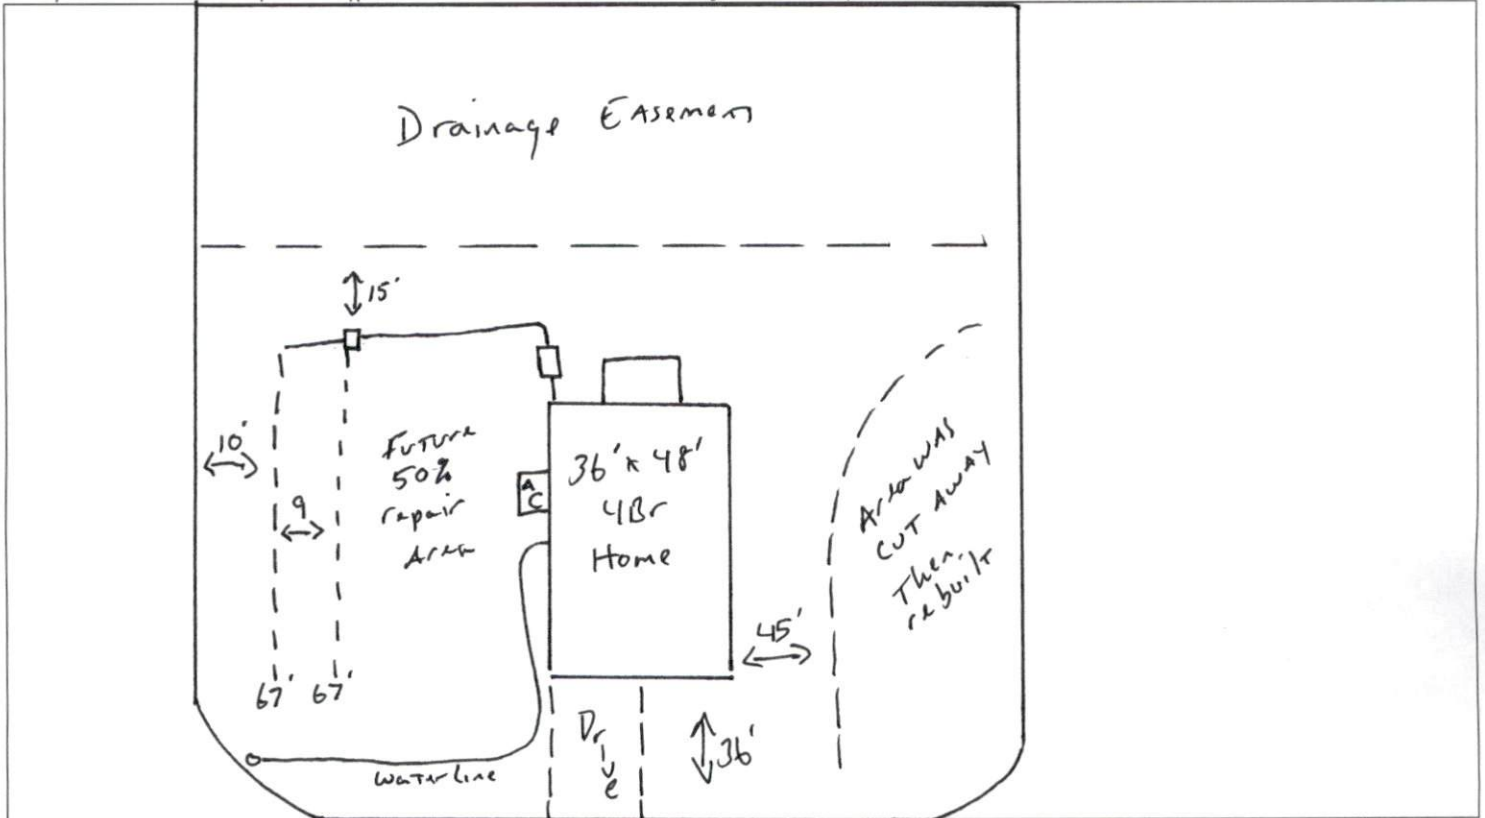 Drainage Easement
15'
10'
9
Future
50%
repair
Area
A
C
36' x 48'
4Br
Home
Area was
cut away
Then
rebuilt
45'
67' 67'
Drive
36'
waterline